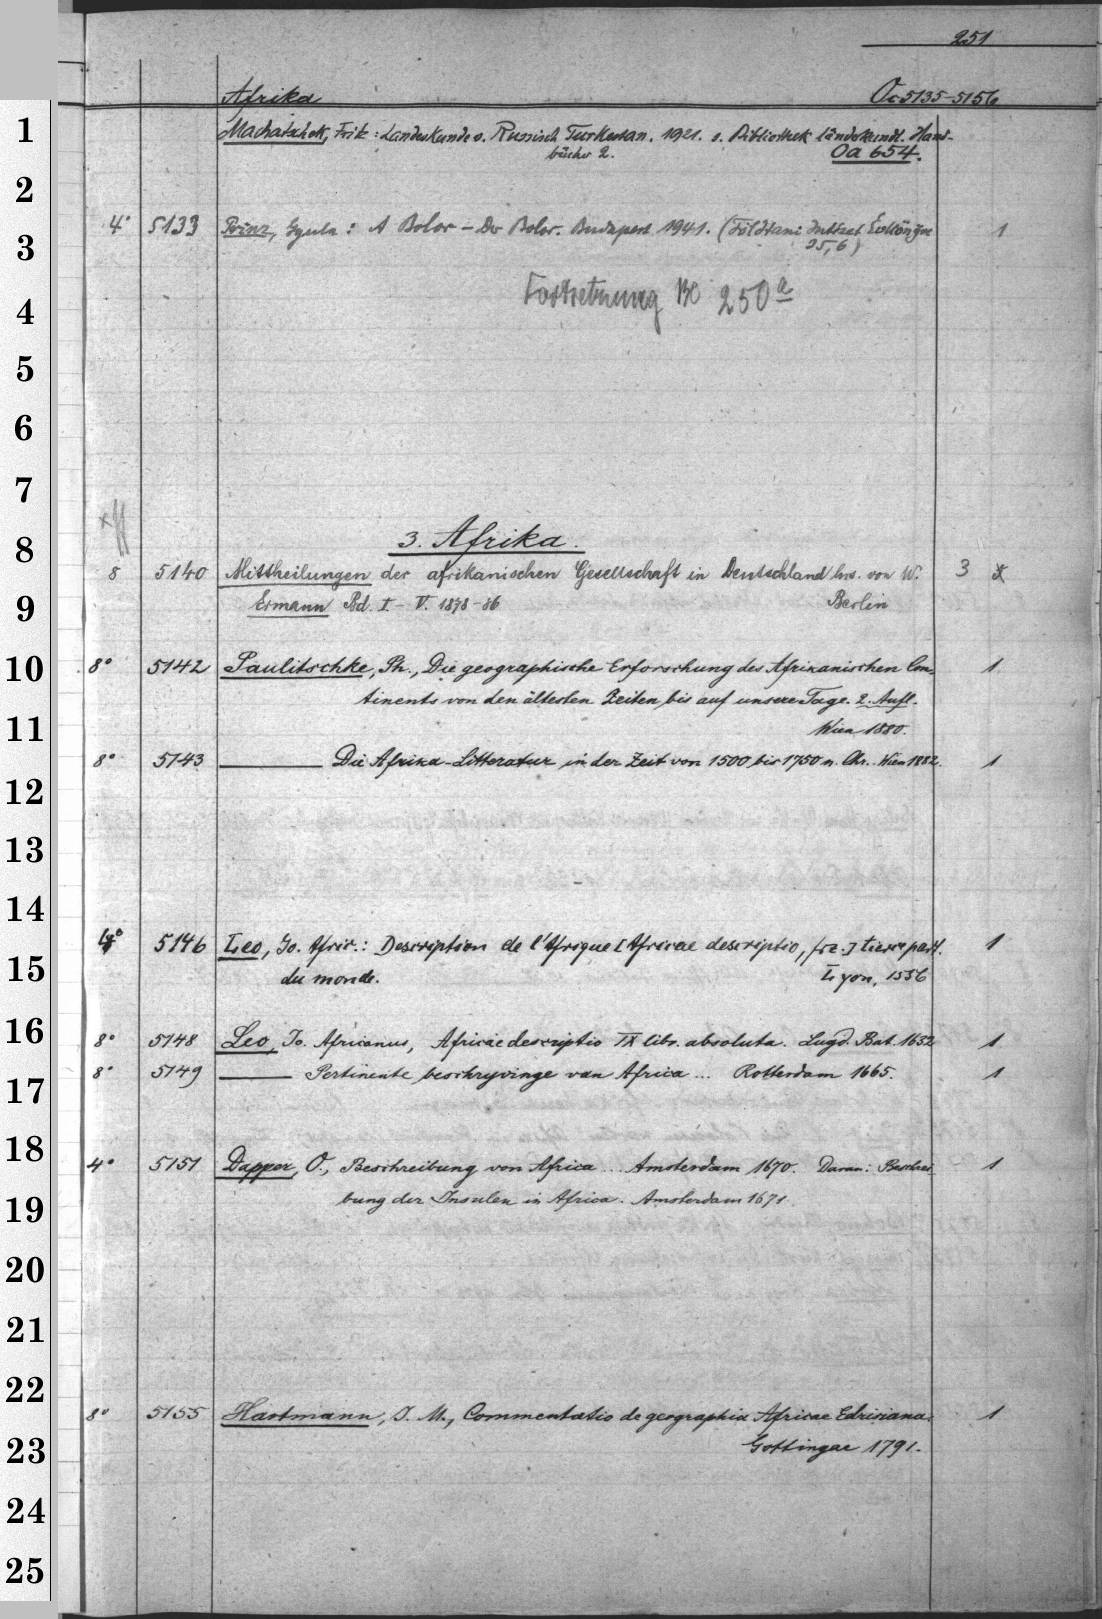 251
Afrika Oc 5135-5156
1 Machatschek, Fritz: Landeskunde v. Russisch Turkestan. 1921. s. Bibliothek länderkundl. Hand-
bücher 2. Oa 654.
2
4° 5133 Prinz, Gyula: A Bolor – Der Bolor. Budapest 1941. (Földtani Intézet 1
3 25,6)
Fortsetzung Bl 250a
4
5
6
7
8 3. Afrika.
8 5140 Mittheilungen der afrikanischen Gesellschaft in Deutschland hrs. von W. 3
9 Ermann Bd. I – V. 1878-86 Berlin
10 8° 5142 Paulitschke, Ph., Die geographische Erforschung des Afrikanischen Con- 1
tinents von den ältesten Zeiten bis auf unsere Tage. 2. Aufl.
11 Wien 1880.
8° 5143 ——— Die Afrika-Litteratur in der Zeit von 1500 bis 1750 n. Chr. Wien 1882. 1
12
13
14
5146 Leo, Jo. Afric.: Description de l'Afrique [Africae descriptio, frz.] tierce part. 1
15 du monde. Lyon, 1556
16 8° 5148 Leo, Jo. Africanus, Africae descriptio IX libr. absoluta. Lugd. Bat. 1632 1
8° 5149 ——— Pertinente beschryvinge van Africa ... Rotterdam 1665. 1
17
18 4° 5151 Dapper, O., Beschreibung von Africa ... Amsterdam 1670. Daran: Beschrei- 1
19 bung der Insulen in Africa. Amsterdam 1671.
20
21
22 8° 5155 Hartmann, J. M., Commentatio de geographia Africae Edrisiana. 1
23 Gottingae 1791.
24
25